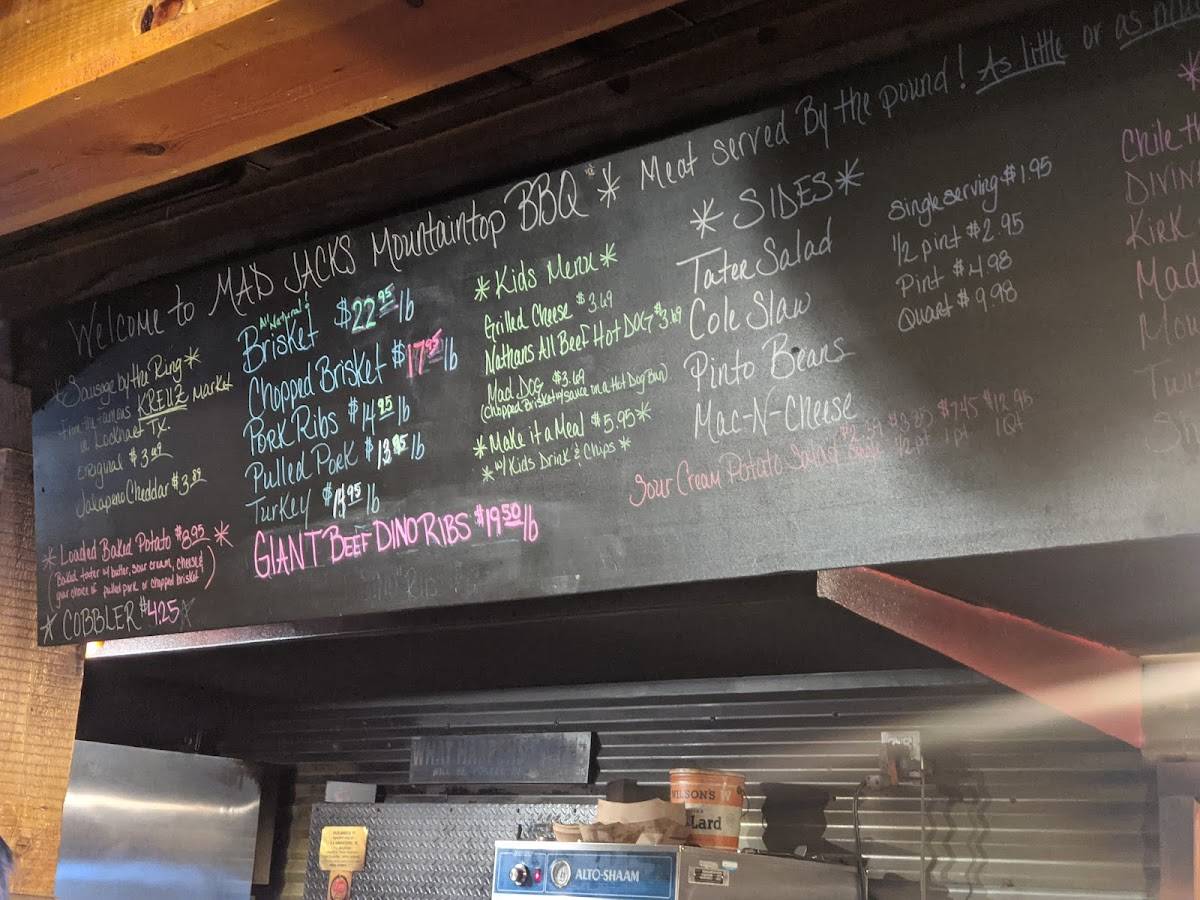 Welcome to MAD JACKS Mountaintop BBQ * Meat served By the pound! As little or as
* Sausage by the Ring *
From the famous KREUZ Market
in Lockhart TX.
Original $3.89
Jalapeno Cheddar $3.89
* Loaded Baked Potato $8.95 *
(Baked tater w/ butter, sour cream, cheese &
your choice of pulled pork or chopped brisket)
* COBBLER $4.25 *
All Natural
Brisket $22.95 lb
Chopped Brisket $17.95 lb
Pork Ribs $14.95 lb
Pulled Pork $13.95 lb
Turkey $14.95 lb
GIANT BEEF DINO RIBS $19.50 lb
* Kids Menu *
Grilled Cheese $3.69
Nathans All Beef Hot DOG $3.69
Mad DOG $3.69
(Chopped Brisket w/sauce on a Hot Dog Bun)
* Make it a Meal $5.95 *
* w/ Kids Drink & Chips *
* SIDES *
Tater Salad
Cole Slaw
Pinto Beans
Mac-N-Cheese
Single serving $1.95
1/2 pint $2.95
Pint $4.98
Quart $9.98
Sour Cream Potato Salad $3.85 $7.45 $12.95
Single 1/2 pt 1 pt 1 Qt
Chile
Kirk
Mad
WILSON'S
Lard
ALTO-SHAAM